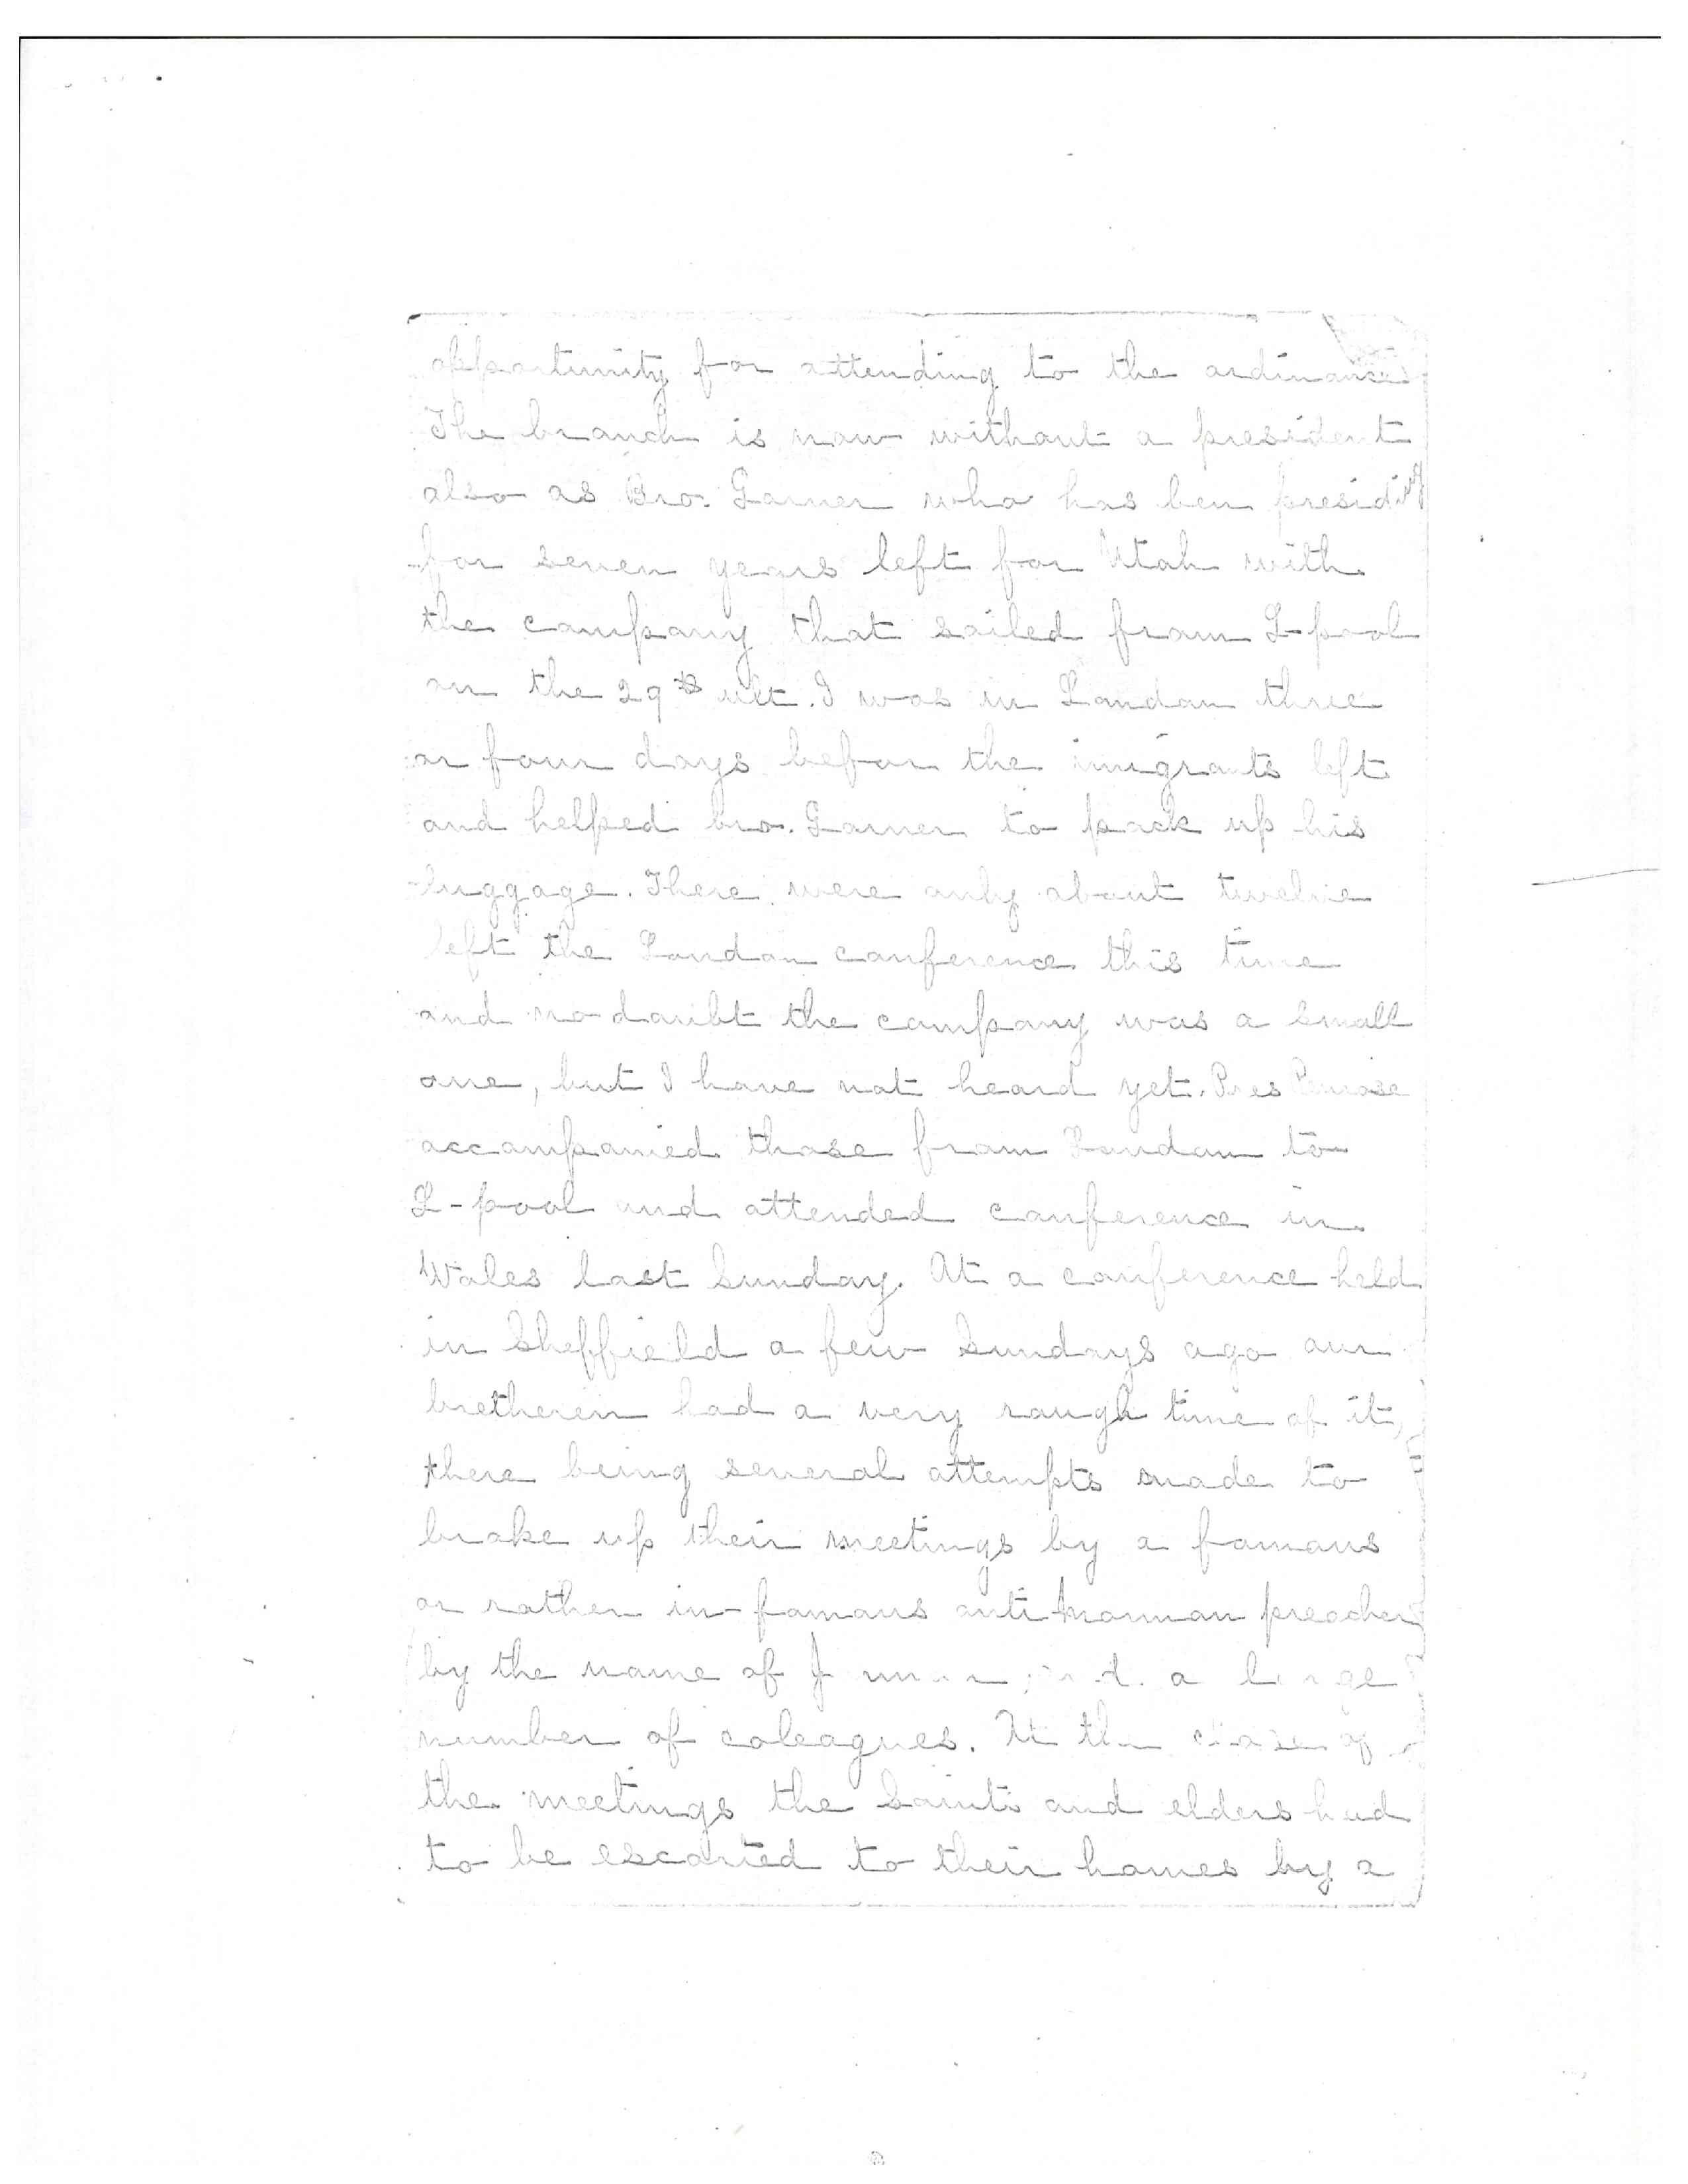 opportunity for attending to the ordinances
The branch is now without a president
also as Bro. Garner who has ben presiding
for seven years left for Utah with
the company that sailed from L-pool
on the 29th ult. I was in London three
or four days befor the imigrants left
and helped bro. Garner to pack up his
luggage. There were only about twelve
left the London conference this time
and no doubt the company was a small
one, but I have not heard yet. Pres Penrose
accompanied those from London to
L-pool and attended conference in
Wales last Sunday. At a conference held
in Sheffield a few Sundays ago our
bretheren had a very rough time of it,
there being several attempts made to
brake up their meetings by a famous
or rather in-famous anti mormon preacher
by the name of a large
number of coleagues. At the close of
the meetings the Saints and elders had
to be escorted to their homes by a